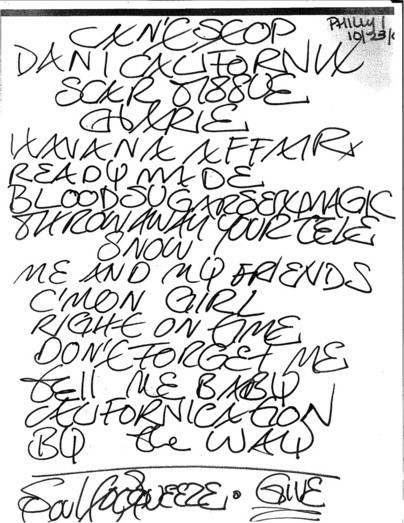 PHILLY
10/23/
CAN'T STOP
DANI CALIFORNIA
SCAR TISSUE
CHARLIE
HAVANA AFFAIR
READYMADE
BLOODSUGARSEXMAGIC
THROW AWAY YOUR TELE
SNOW
ME AND MY FRIENDS
C'MON GIRL
RIGHT ON TIME
DON'T FORGET ME
tell ME BABY
CALIFORNICATION
BY the WAY
Soul to SQUEEZE • GIVE